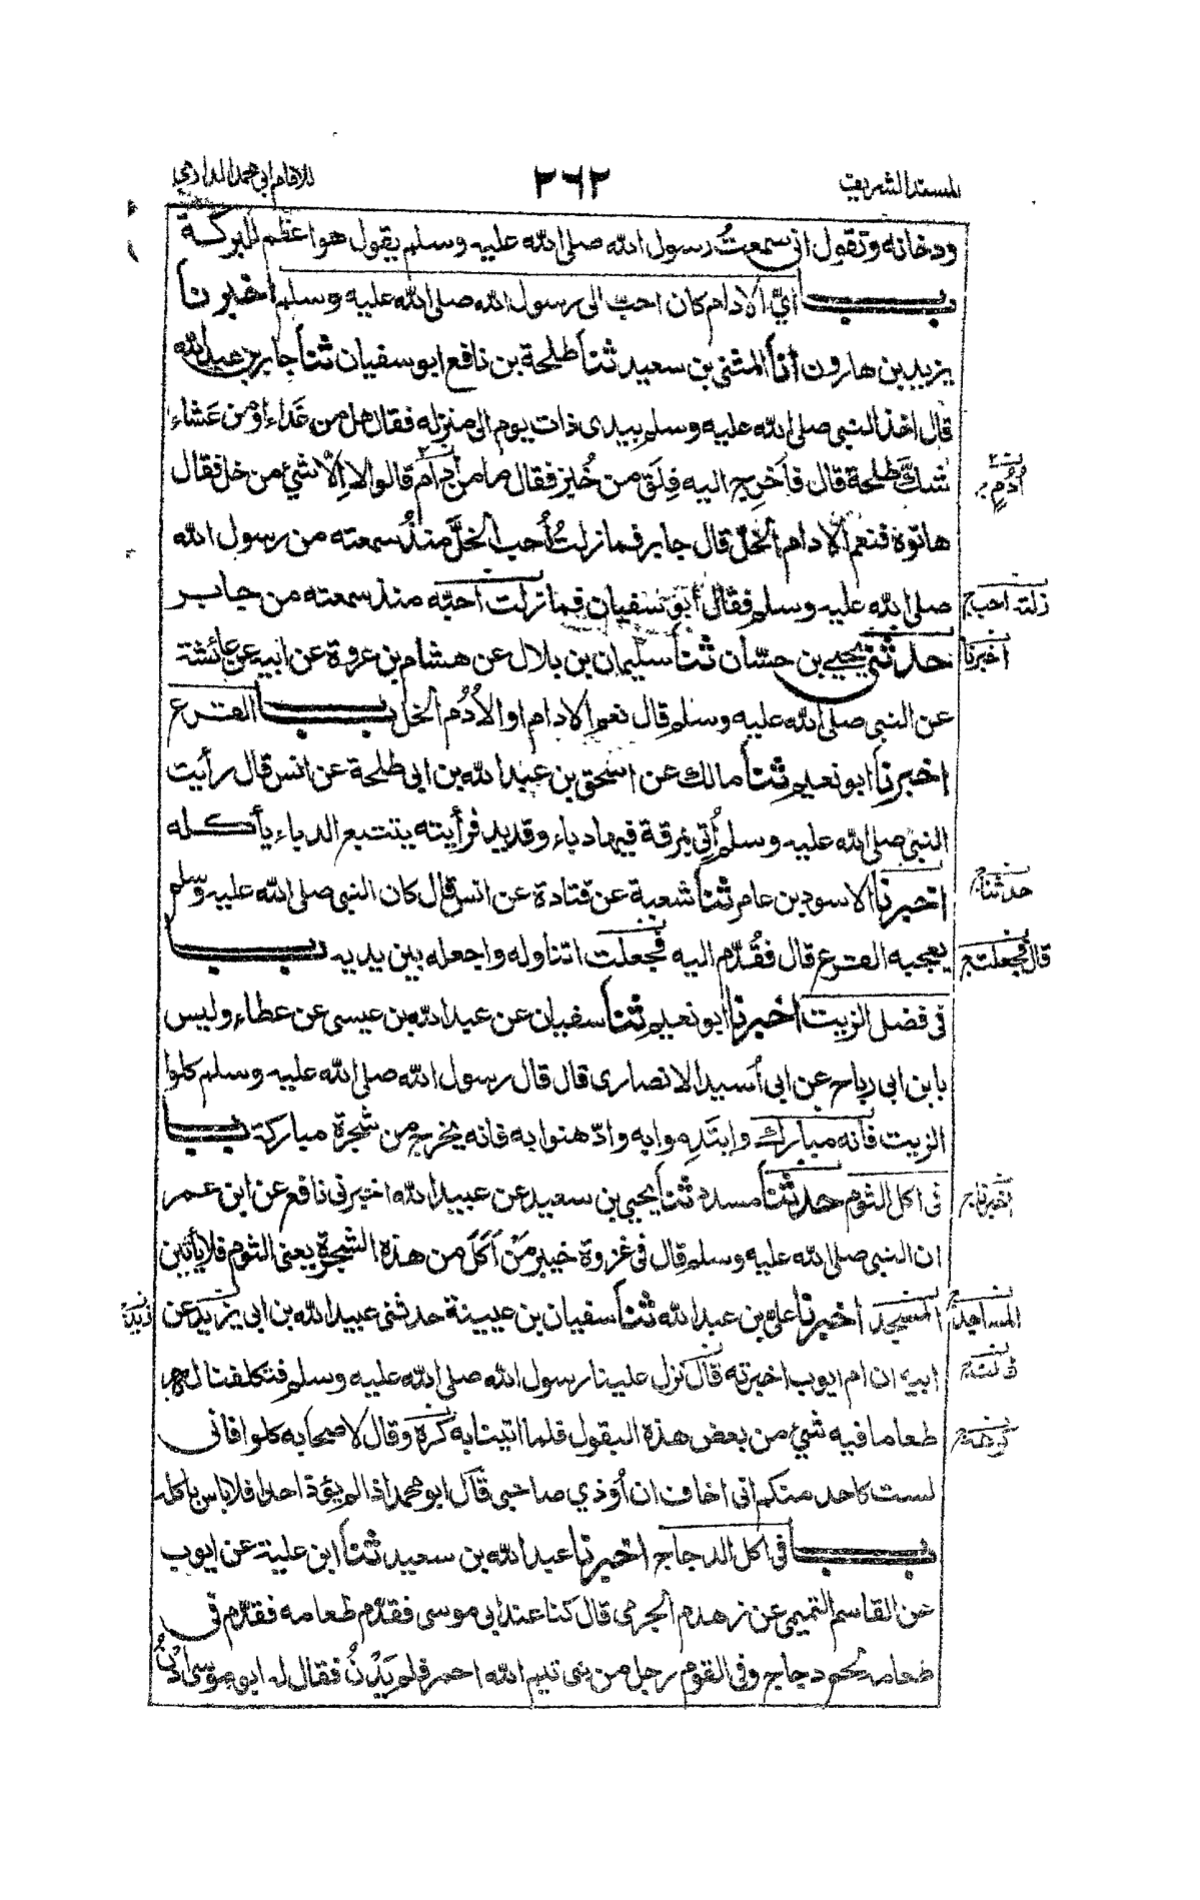 المسند الشريف
٢٦٢
للامام ابي محمد الدارمي
ودخانه وتقول انى سمعتُ رسول الله صلى الله عليه وسلم يقول هو اعظم للبركة
باب أيّ الادام كان احبّ الى رسول الله صلى الله عليه وسلم اخبرنا
يزيد بن هارون أنا المثنى بن سعيد ثنا طلحة بن نافع ابو سفيان ثنا جابر بن عبد الله
قال اخذ النبي صلى الله عليه وسلم بيدى ذات يوم الى منزله فقال هل من غَداء او من عَشاء
شكّ طلحة قال فأخرج اليه فِلَق من خُبز فقال ما من اِدام قالوا لا اِلّا شئ من خل فقال
اُدُمٍ
هاتوه فنعم الادام الخلّ قال جابر فما زلتُ اُحب الخلَّ منذُ سمعته من رسول الله
صلى الله عليه وسلم فقال ابو سفيان فما زلت احبّه منذ سمعته من جابر
زلته احب
حدثنى يحيى بن حسّان ثنا سليمان بن بلال عن هشام بن عروة عن ابيه عن عائشة
اخبرنا
عن النبي صلى الله عليه وسلم قال نعم الادام او الاُدُم الخل باب القرع
اخبرنا ابو نعيم ثنا مالك عن اسحق بن عبد الله بن ابى طلحة عن انس قال رأيت
النبي صلى الله عليه وسلم اُتِى بمرقة فيها دباء وقديد فرأيته يتتبع الدباء يأكله
اخبرنا الاسود بن عامر ثنا شعبة عن قتادة عن انس قال كان النبي صلى الله عليه وسلم
حدثنا
يعجبه القرع قال فقُدّم اليه فجعلت اتناوله واجعله بين يديه باب
قال فجعلت
فى فضل الزيت اخبرنا ابو نعيم ثنا سفيان عن عبد الله بن عيسى عن عطاء وليس
بابن ابى رباح عن ابى اُسيد الانصارى قال قال رسول الله صلى الله عليه وسلم كلوا
الزيت فانه مبارك وايتَدِموا به وادّهنوا به فانه يخرج من شجرة مباركة باب
فى اكل الثوم حدثنا مسدد ثنا يحيى بن سعيد عن عبيد الله اخبرنى نافع عن ابن عمر
اخبرنا
ان النبي صلى الله عليه وسلم قال فى غزوة خيبر مَنْ اَكَلَ من هذه الشجرة يعنى الثوم فلا يأتين
المسجد اخبرنا على بن عبد الله ثنا سفيان بن عيينة حدثنى عبيد الله بن ابى يزيد عن
المساجد
ابيه ان ام ايوب اخبرته قال نزل علينا رسول الله صلى الله عليه وسلم فتكلفنا له
قالت
طعاما فيه شئ من بعض هذه البقول فلما اتيناه به كَرِهَ وقال لاصحابه كلوا فانى
كرهه
لست كاحد منكم انى اخاف ان اُوذي صاحبى قال ابو محمد اذا لم يؤذ احدا فلا باس باكله
باب فى اكل الدجاج اخبرنا عبد الله بن سعيد ثنا ابن علية عن ايوب
عن القاسم التميمى عن زهدم الجرمى قال كنا عند ابى موسى فقدّم طعامه فقدّم فى
طعامه لحم دجاج وفى القوم رجل من بنى تيم الله احمر فلم يَدْنُ فقال له ابو موسى اُدْنُ